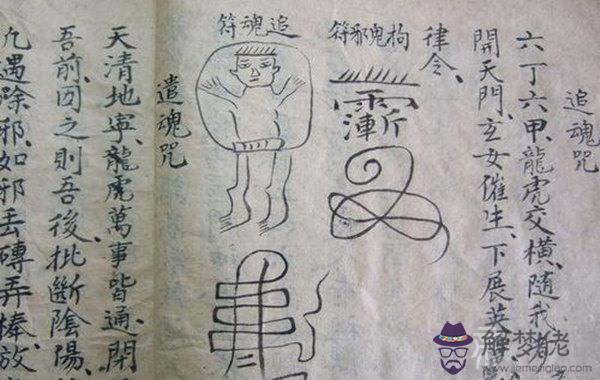 追魂咒
六丁六甲、龍虎交橫、隨我
開天門、玄女催生、下展英
律令、
拘鬼邪符
追魂符
遣魂咒
天清地寧、龍虎萬事皆通、閉
吾前、因之則吾後、批斷陰陽、
凡遇除邪、如邪丢磚弄棒、放
解梦佬
www.jiemenglao.com